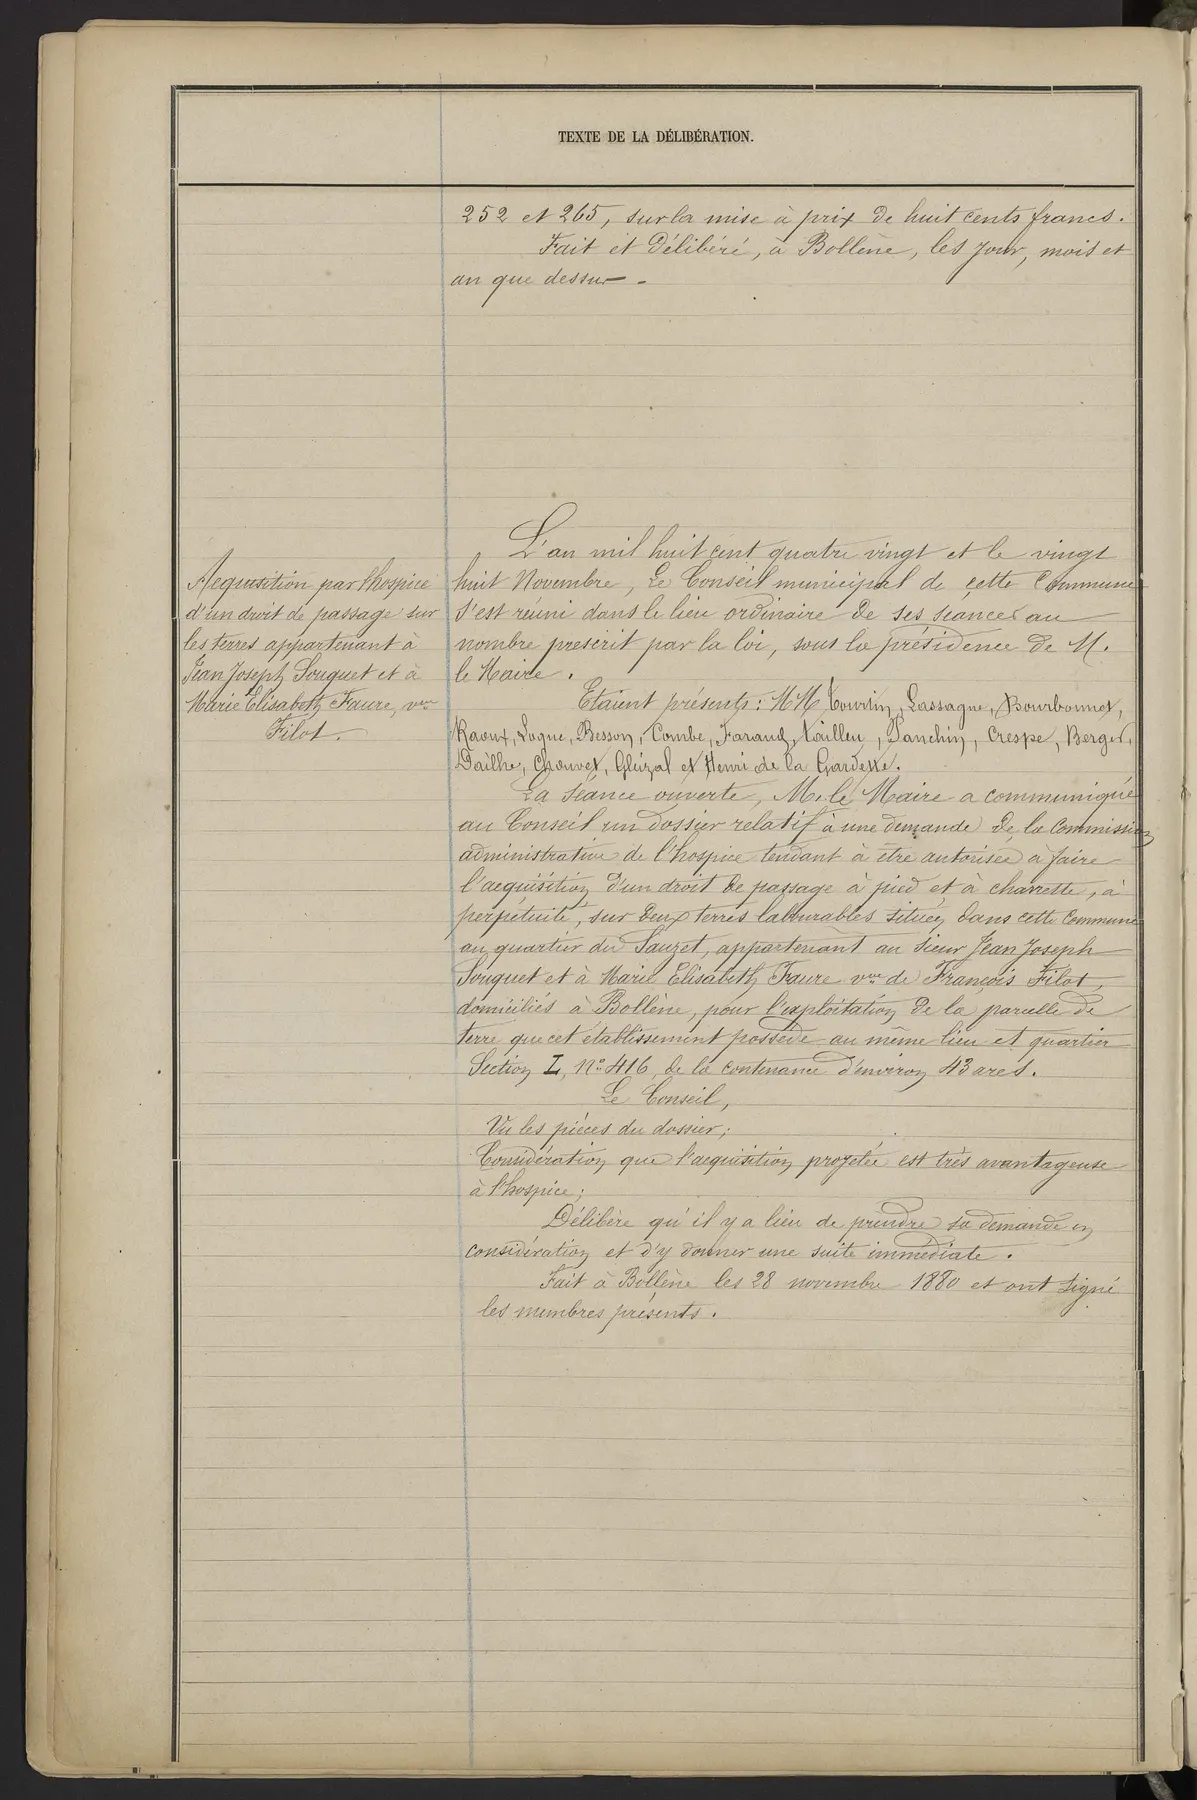 TEXTE DE LA DÉLIBÉRATION.
252 et 265, sur la mise à prix de huit cents francs.
Fait et Délibéré, à Bollène, les jour, mois et
an que dessus -
Acquisition par l'hospice
d'un droit de passage sur
les terres appartenant à
Jean Joseph Souquet et à
Marie Elisabeth Faure, vve
Filot.
L'an mil huit cent quatre vingt et le vingt
huit Novembre, Le Conseil municipal de cette Commune
s'est réuni dans le lieu ordinaire de ses séances au
nombre prescrit par la loi, sous la présidence de M.
le Maire.
Etaient présents : MM Tourtin, Lassagne, Bourbonnet,
Raoux, Logne, Besson, Combe, Faraud, Tailleu, Janchin, Crespe, Berger,
Dailhe, Chauvet, Gleizal et Henri de la Gardette.
La Séance ouverte, M. le Maire a communiqué
au Conseil un dossier relatif à une demande de la Commission
administrative de l'hospice tendant à être autorisée à faire
l'acquisition d'un droit de passage à pied et à charrette, à
perpétuité, sur deux terres labourables situées dans cette Commune
au quartier du Sauzet, appartenant au sieur Jean Joseph
Souquet et à Marie Elisabeth Faure vve de François Filot,
domiciliés à Bollène, pour l'exploitation de la parcelle de
terre que cet établissement possède au même lieu et quartier
Section L, No 416, de la contenance d'environ 43 ares.
Le Conseil,
Vu les pièces du dossier ;
Considération que l'acquisition projetée est très avantageuse
à l'hospice ;
Délibère qu'il y a lieu de prendre sa demande en
considération et d'y donner une suite immédiate.
Fait à Bollène les 28 novembre 1880 et ont signé
les membres présents.